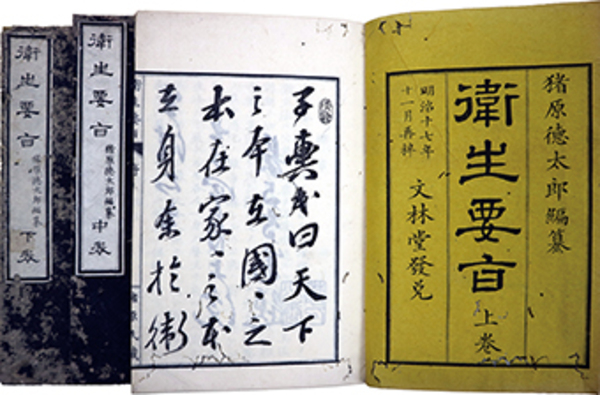 猪原德太郎編纂
衛生要旨 上卷
明治十七年
十一月再梓
文林堂發兌
子輿氏曰天下
之本在國〻之
本在家〻之本
在身余於衛
衛生要旨 猪原德太郎編纂 中卷
衛生要旨 猪原德太郎編纂 下卷